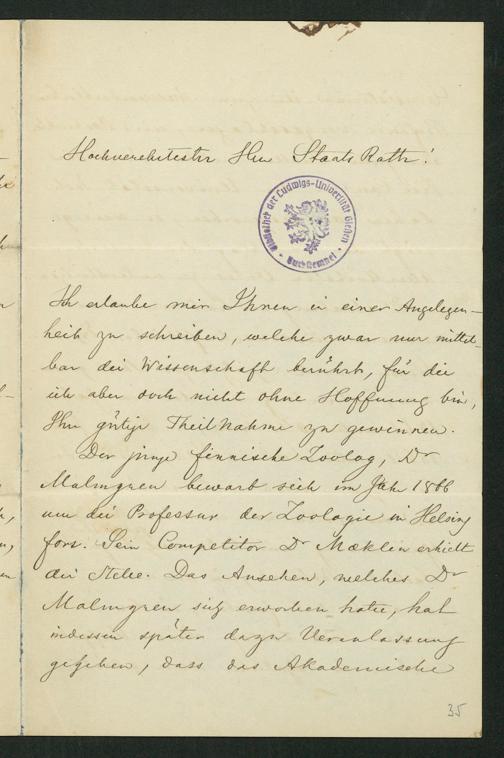 Hochverehrtester Herr Staats Rath!
Bibliothek der Ludwigs-Universität Giessen
Buchstempel
Ich erlaube mir Ihnen in einer Angelegen-
heit zu schreiben, welche zwar nur mittel-
bar die Wissenschaft berührt, für die
ich aber doch nicht ohne Hoffnung bin,
Ihre gütige Theilnahme zu gewinnen.
Der junge finnische Zoolog, Dr
Malmgren bewarb sich im Jahr 1866
um die Professur der Zoologie in Helsing
fors. Sein Competitor Dr Mæklin erhielt
die Stelle. Das Ansehen, welches Dr
Malmgren sich erworben hatte, hat
indessen später dazu Veranlassung
gegeben, dass das Akademische
35